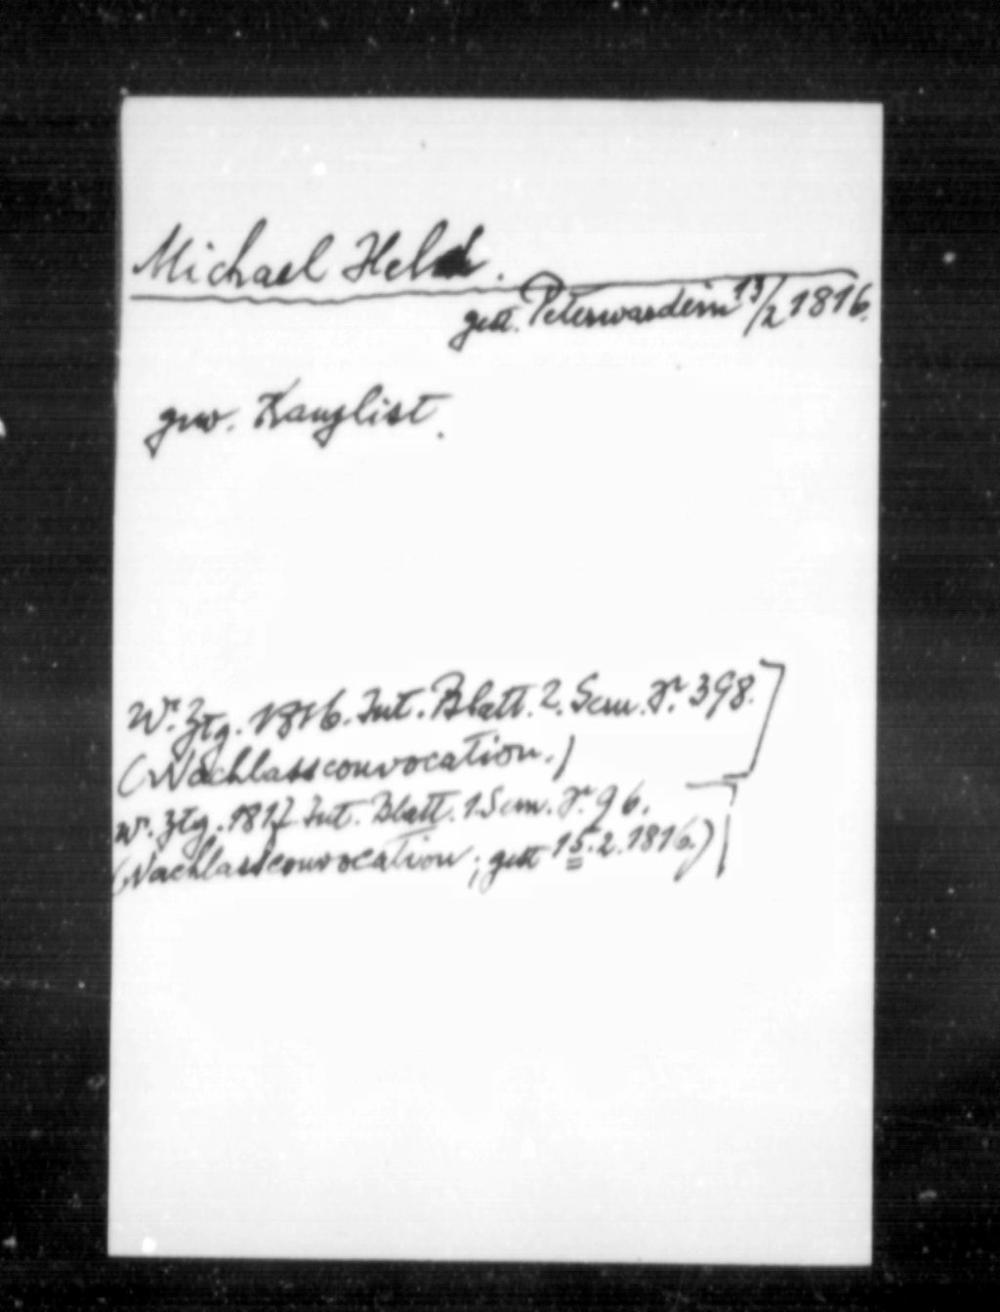 Michael Held.
gest. Peterwardein 13/2 1816.
gew. Kanzlist.
Wr. Ztg. 1816. Int. Blatt. 2. Sem. S. 398.
(Nachlassconvocation.)
Wr. Ztg. 1817 Int. Blatt. 1 Sem. S. 96.
(Nachlassconvocation; gest 15.2.1816.)